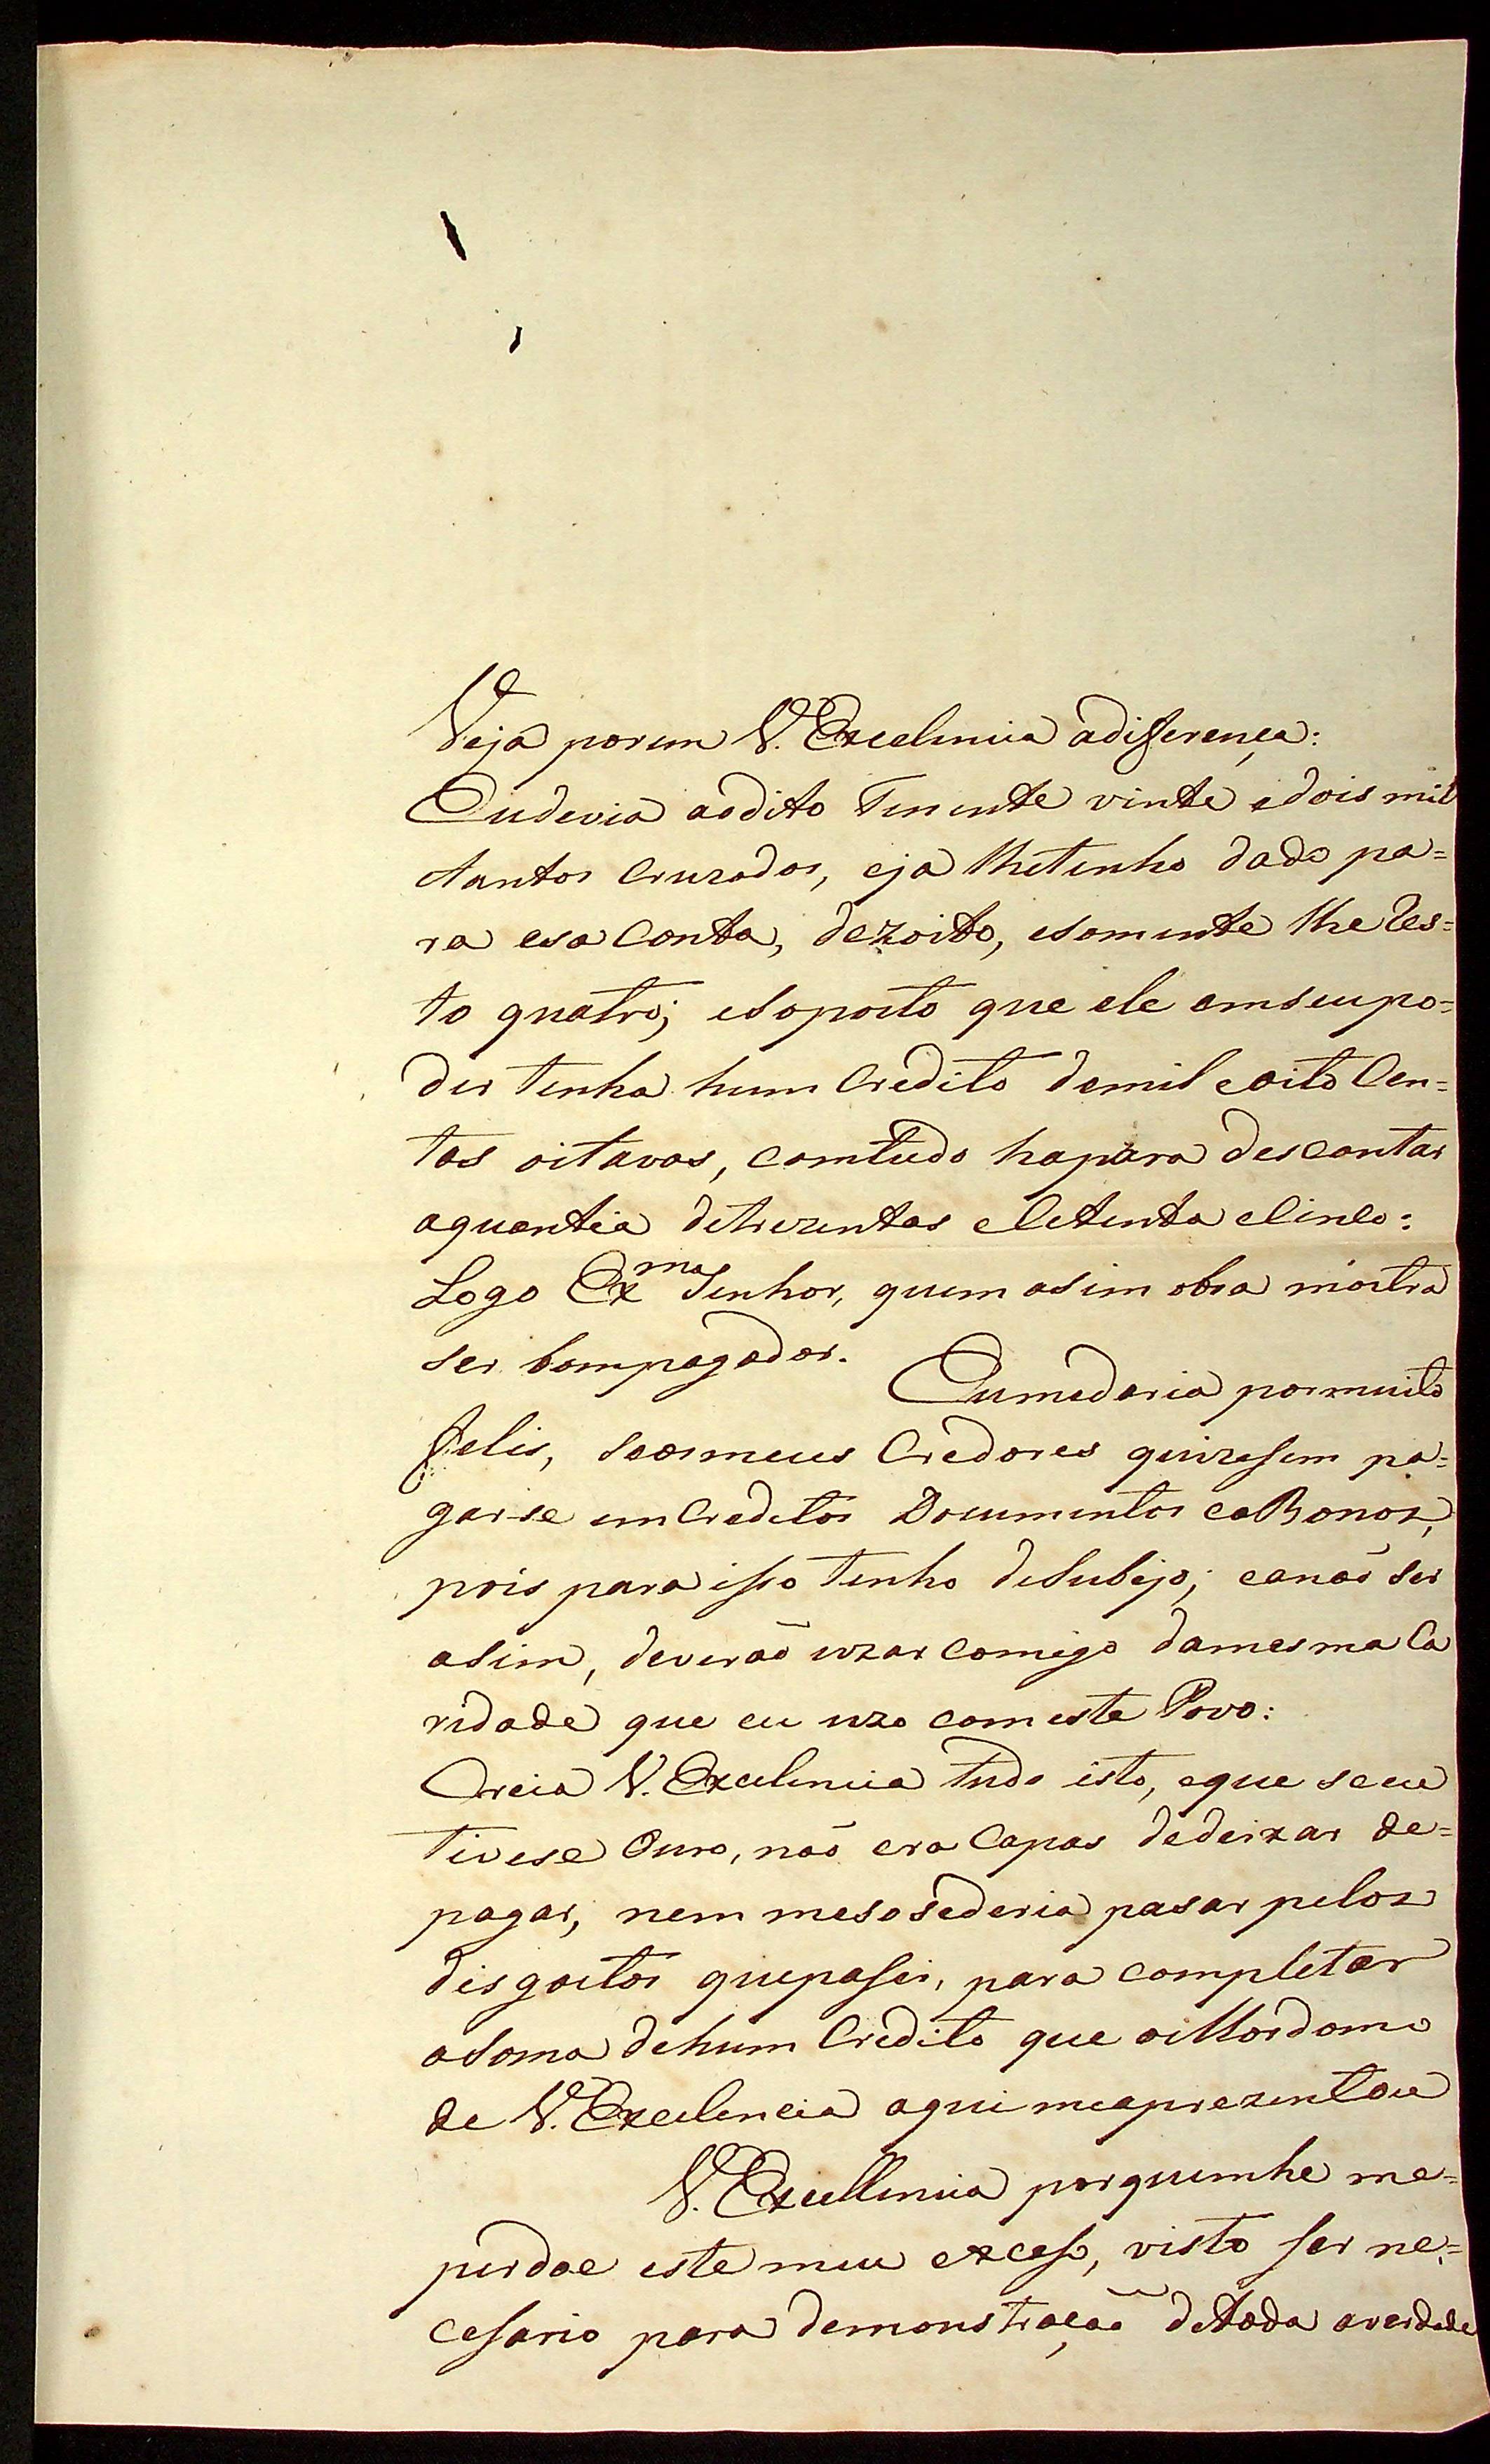 Veja porem V. Excelencia adiferença:
Eudevia aodito Tenente vinte edois mil
tantos Cruzados, eja lhetenho dado pa=
ra esa Conta, dezoito, esomente lhe Res=
to quatro; eSoposto que ele emseupo=
der tenha hum Credito demil eoito Cen=
tas oitavas, comtudo hapara descontar
aquantia detrezentas eSetenta eSinco:
Logo Ex.mo Senhor, quem asim obra mostra
ser bompagador.
Eumedaria pormuito
felis, seosmeus Credores quizesem pa=
garse emCreditos Documentos eaBonos,
pois para isso tenho desubejo; eanaõ ser
asim, deveraõ uzar Comigo damesma Ca
ridade que eu uzo com este Povo:
Creia V. Excelencia tudo isto, eque seeu
tivese Ouro, naõ era Capas dedeixar de=
pagar, nem mesosederia pasar pelos
disgostos quepasei, para completar
aSoma dehum Credito que oMordomo
de V. Excelencia aqui meaprezentou
V. Excellencia porquemhe me=
perdoe este meu exceso, visto ser ne=
cesario para demonstraçaõ detoda averdade